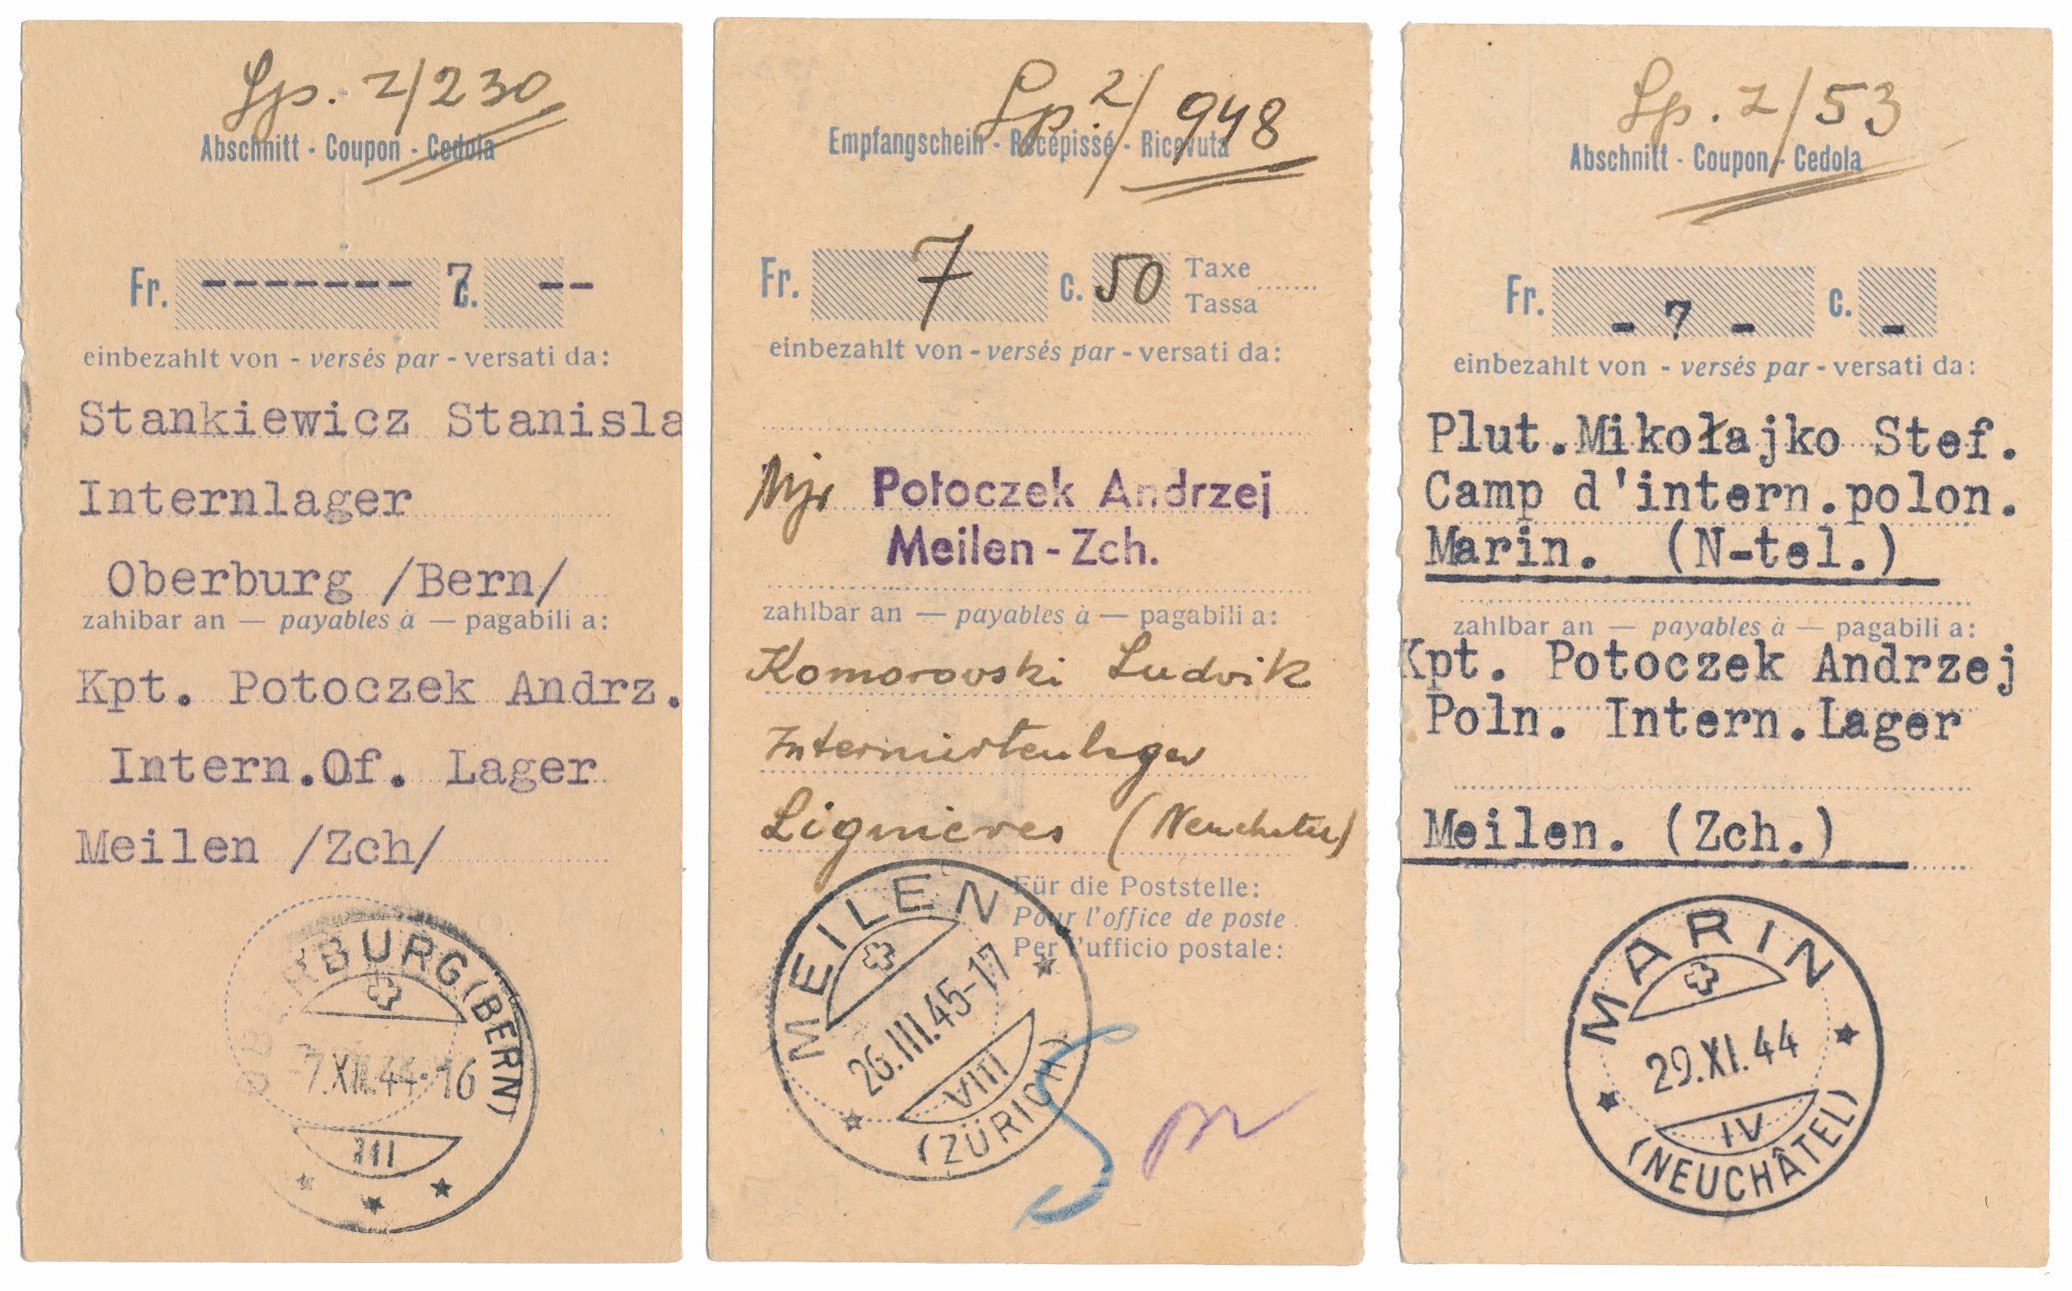 Lp. 2/230
Abschnitt - Coupon - Cedola
Fr. ------- 7 c. --
einbezahlt von - versés par - versati da:
Stankiewicz Stanisla
Internlager
Oberburg /Bern/
zahlbar an — payables à — pagabili a:
Kpt. Potoczek Andrz.
Intern.Of. Lager
Meilen /Zch/
BURG (BERN)
7.XII.44-16
III
Lp. 2/948
Empfangschein - Récépissé - Ricevuta
Fr. 7 c. 50 Taxe
Tassa
einbezahlt von - versés par - versati da:
Mjr Potoczek Andrzej
Meilen - Zch.
zahlbar an — payables à — pagabili a:
Komorovski Ludvik
Internirtenlager
Lignieres (Neuchatel)
Für die Poststelle:
Pour l'office de poste
Per l'ufficio postale:
MEILEN
26.III.45-17
VIII
(ZÜRICH)
Lp. 2/53
Abschnitt - Coupon - Cedola
Fr. - 7 - c. -
einbezahlt von - versés par - versati da:
Plut.Mikołajko Stef.
Camp d'intern.polon.
Marin. (N-tel.)
zahlbar an — payables à — pagabili a:
Kpt. Potoczek Andrzej
Poln. Intern.Lager
Meilen. (Zch.)
MARIN
29.XI.44
IV
(NEUCHÂTEL)